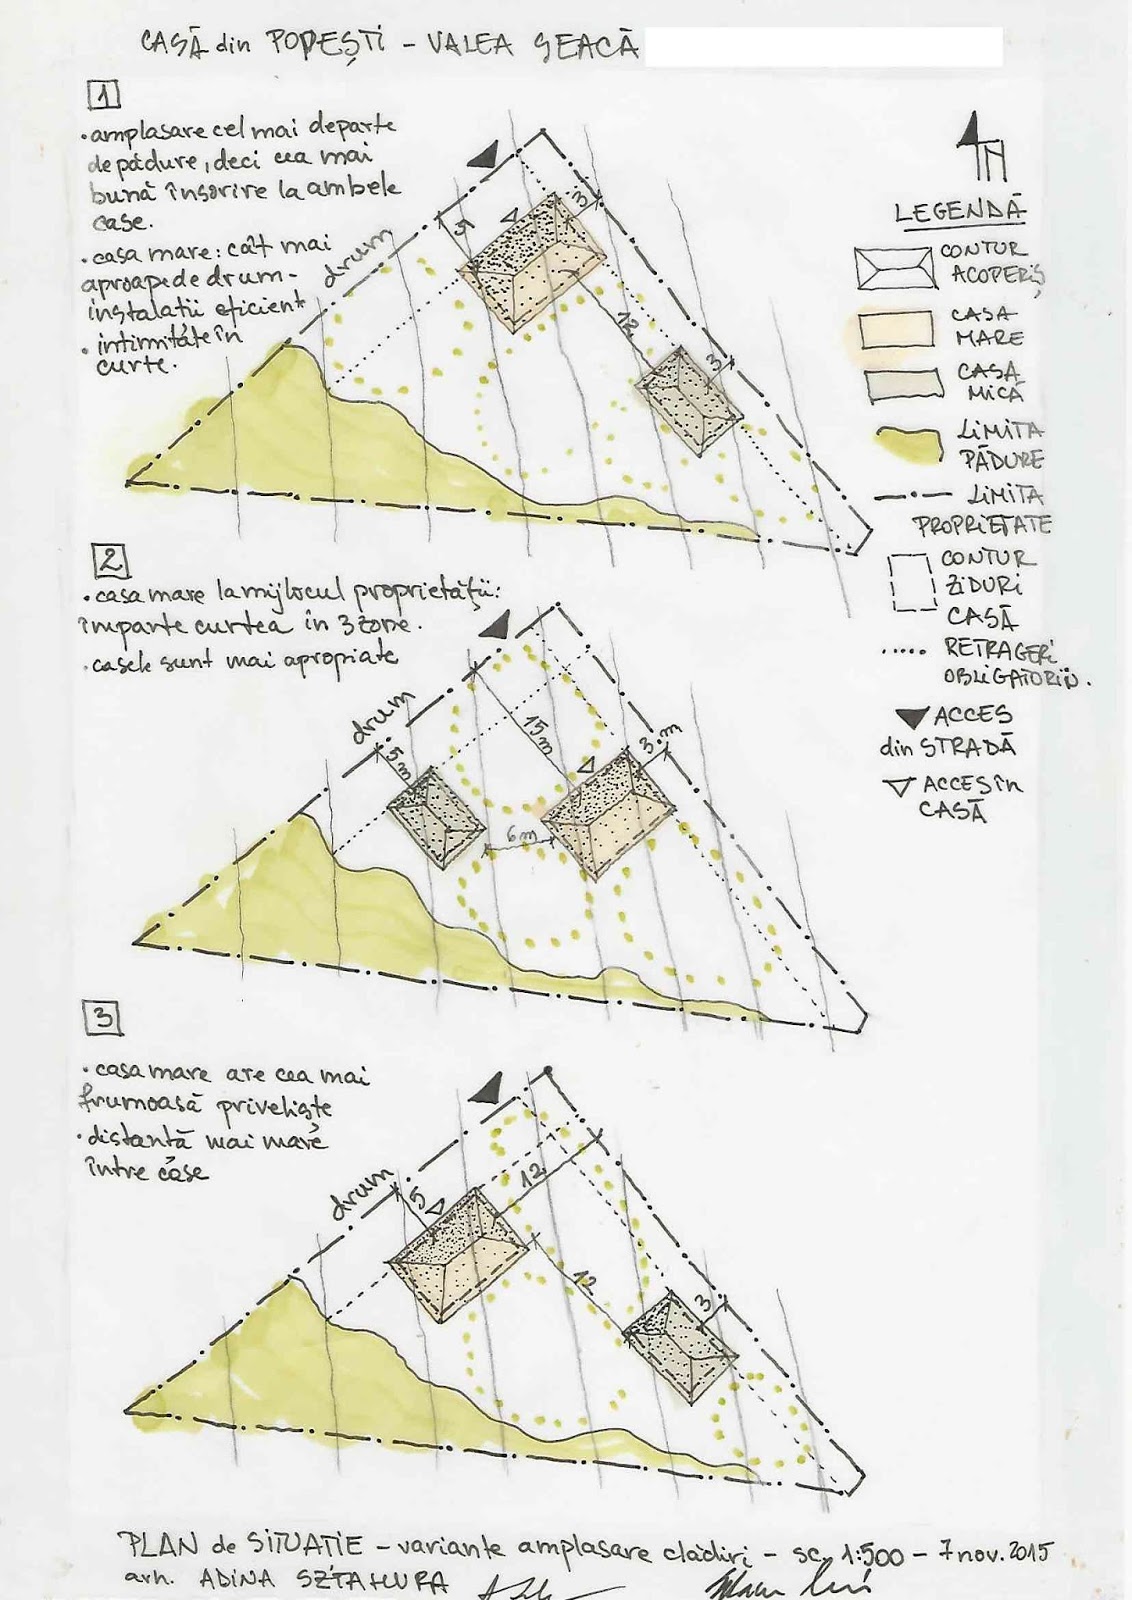 CASĂ din POPEȘTI - VALEA SEACĂ
1
• amplasare cel mai departe
de pădure, deci cea mai
bună însorire la ambele
case.
• casa mare: cât mai
aproape de drum -
instalatii eficient
• intimitate în
curte.
drum
5
3
12
3
LEGENDĂ
CONTUR
ACOPERIȘ
CASA
MARE
CASA
MICĂ
LIMITA
PĂDURE
LIMITA
PROPRIETATE
CONTUR
ZIDURI
CASĂ
RETRAGERI
OBLIGATORII.
ACCES
din STRADĂ
ACCES în
CASĂ
2
• casa mare la mijlocul proprietății:
împarte curtea în 3 zone.
• casele sunt mai apropiate
drum
5m
15m
3.m
6m
3
• casa mare are cea mai
frumoasă priveliște
• distantă mai mare
între case
drum
5
12
12
3
PLAN de SITUATIE - variante amplasare clădiri - sc. 1:500 - 7 nov. 2015
arh. ADINA SZTAHURA